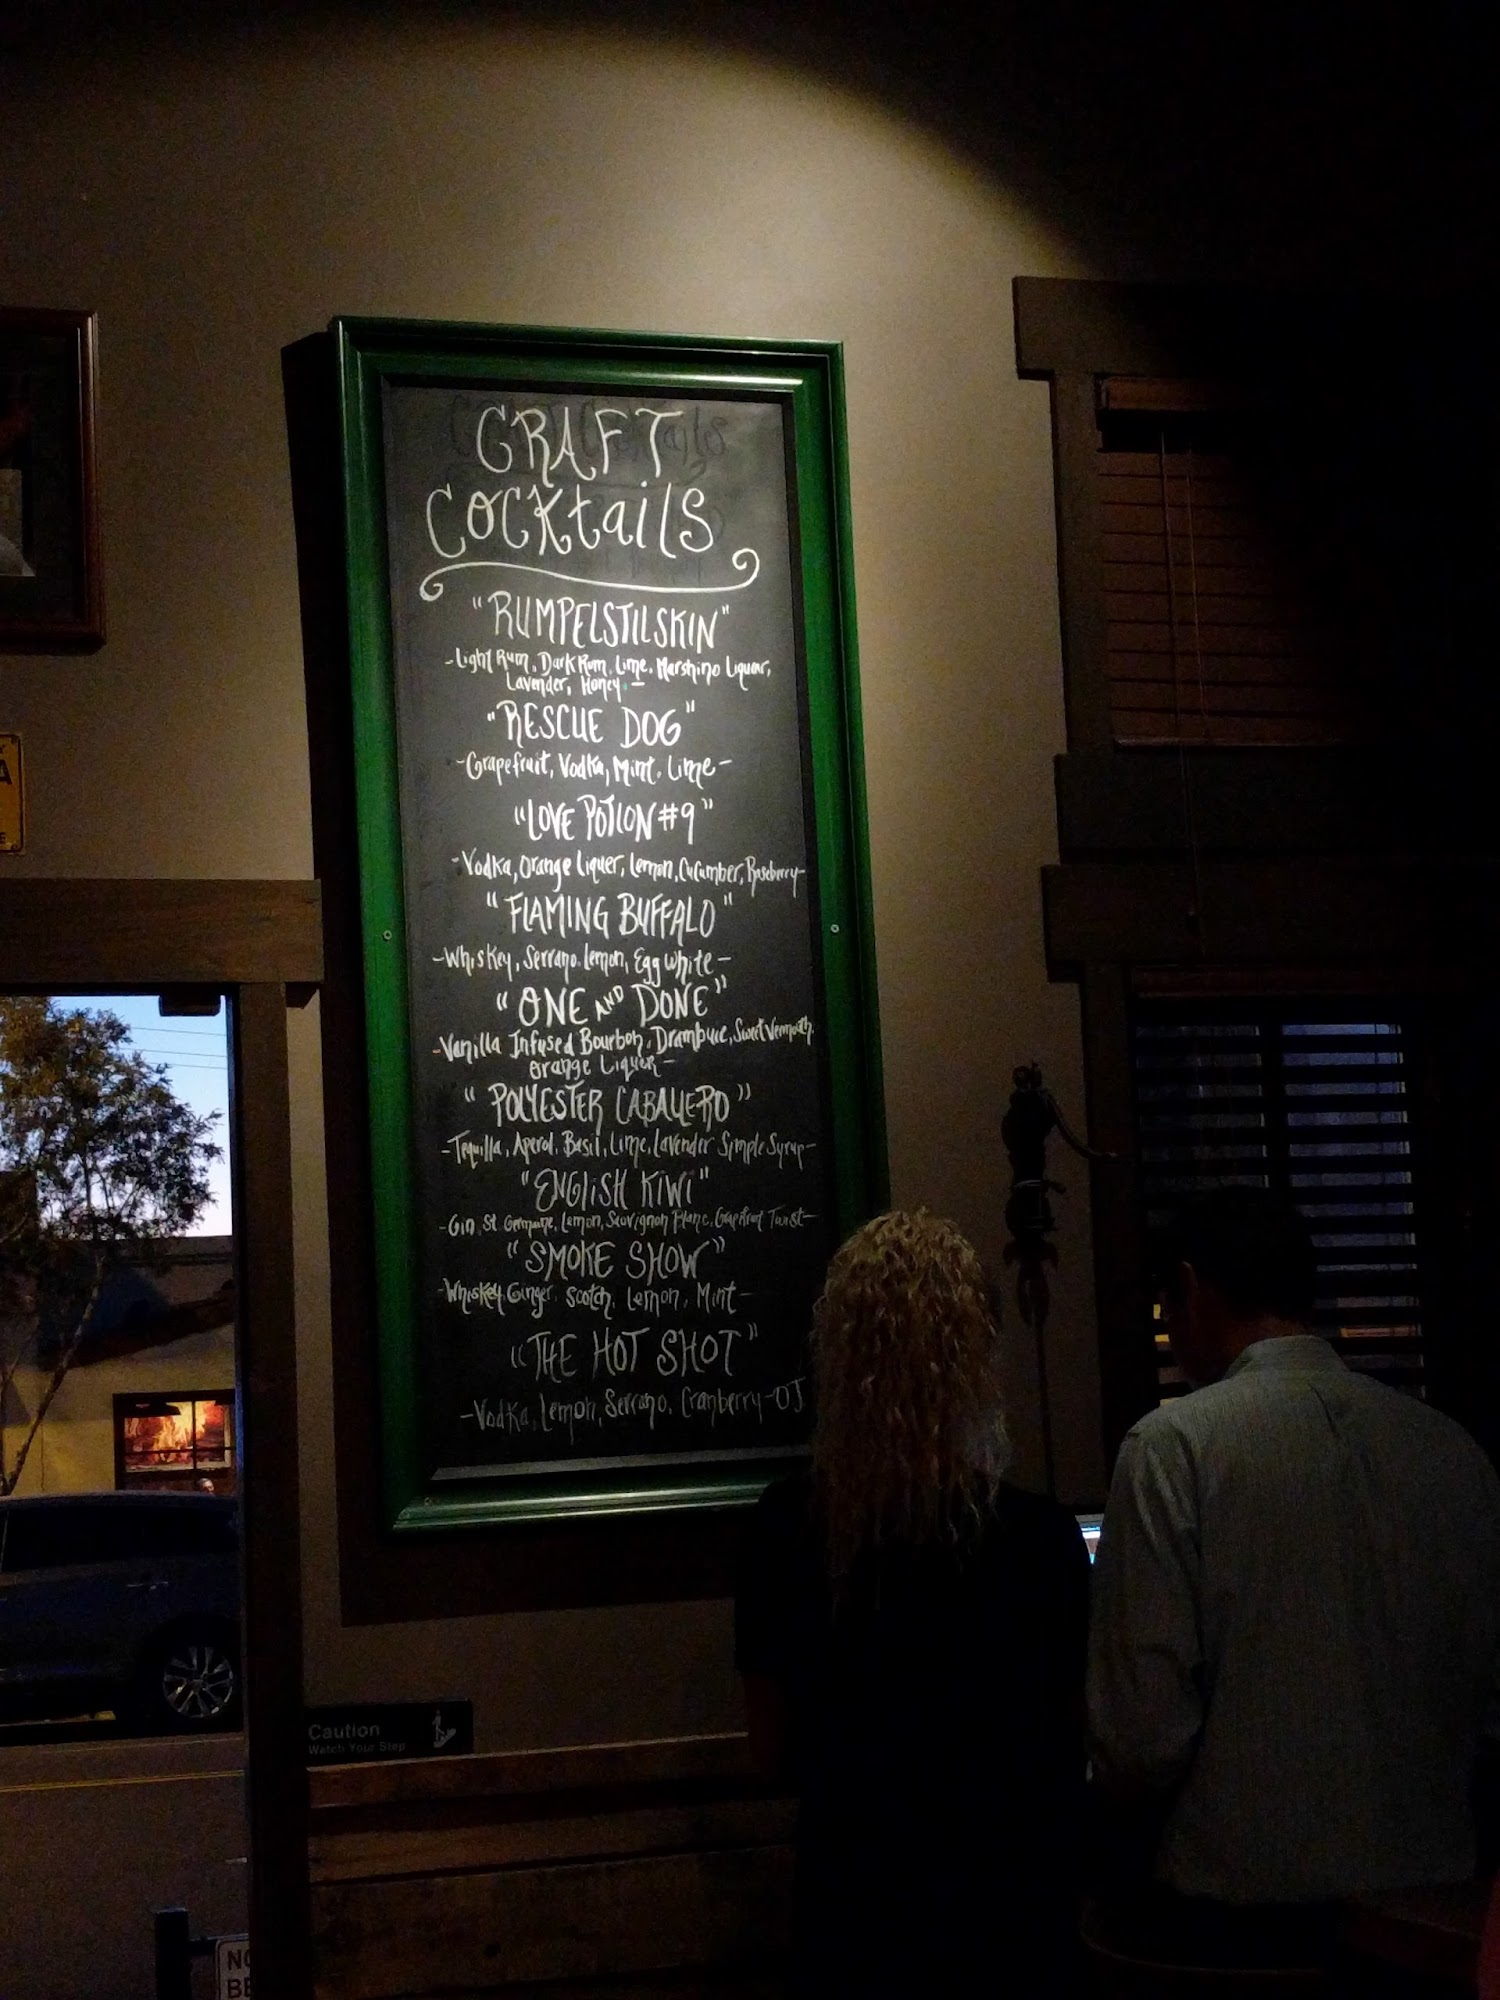 CRAFT
COCKtailS
"RUMPELSTILSKIN"
-Light Rum, Dark Rum, Lime, Marshino Liquor,
Lavender, Honey-
"RESCUE DOG"
-Grapefruit, Vodka, Mint, Lime-
"LOVE POTION #9"
-Vodka, Orange Liquer, Lemon, Cucumber, Raseberry-
"FLAMING BUFFALO"
-Whiskey, Serrano, Lemon, Egg White-
"ONE AND DONE"
-Vanilla Infused Bourbon, Drambuie, Sweet Vermouth,
Orange Liquor-
"POLYESTER CABALLERO"
-Tequilla, Aperol, Basil, Lime, Lavender Simple Syrup-
"ENGLISH KIWI"
-Gin, St. Germaine, Lemon, Sauvignon Blanc, Grapefruit Twist-
"SMOKE SHOW"
-Whiskey, Ginger, Scotch, Lemon, Mint-
"THE HOT SHOT"
-Vodka, Lemon, Serrano, Cranberry-OJ
Caution
Watch Your Step
NO
BE